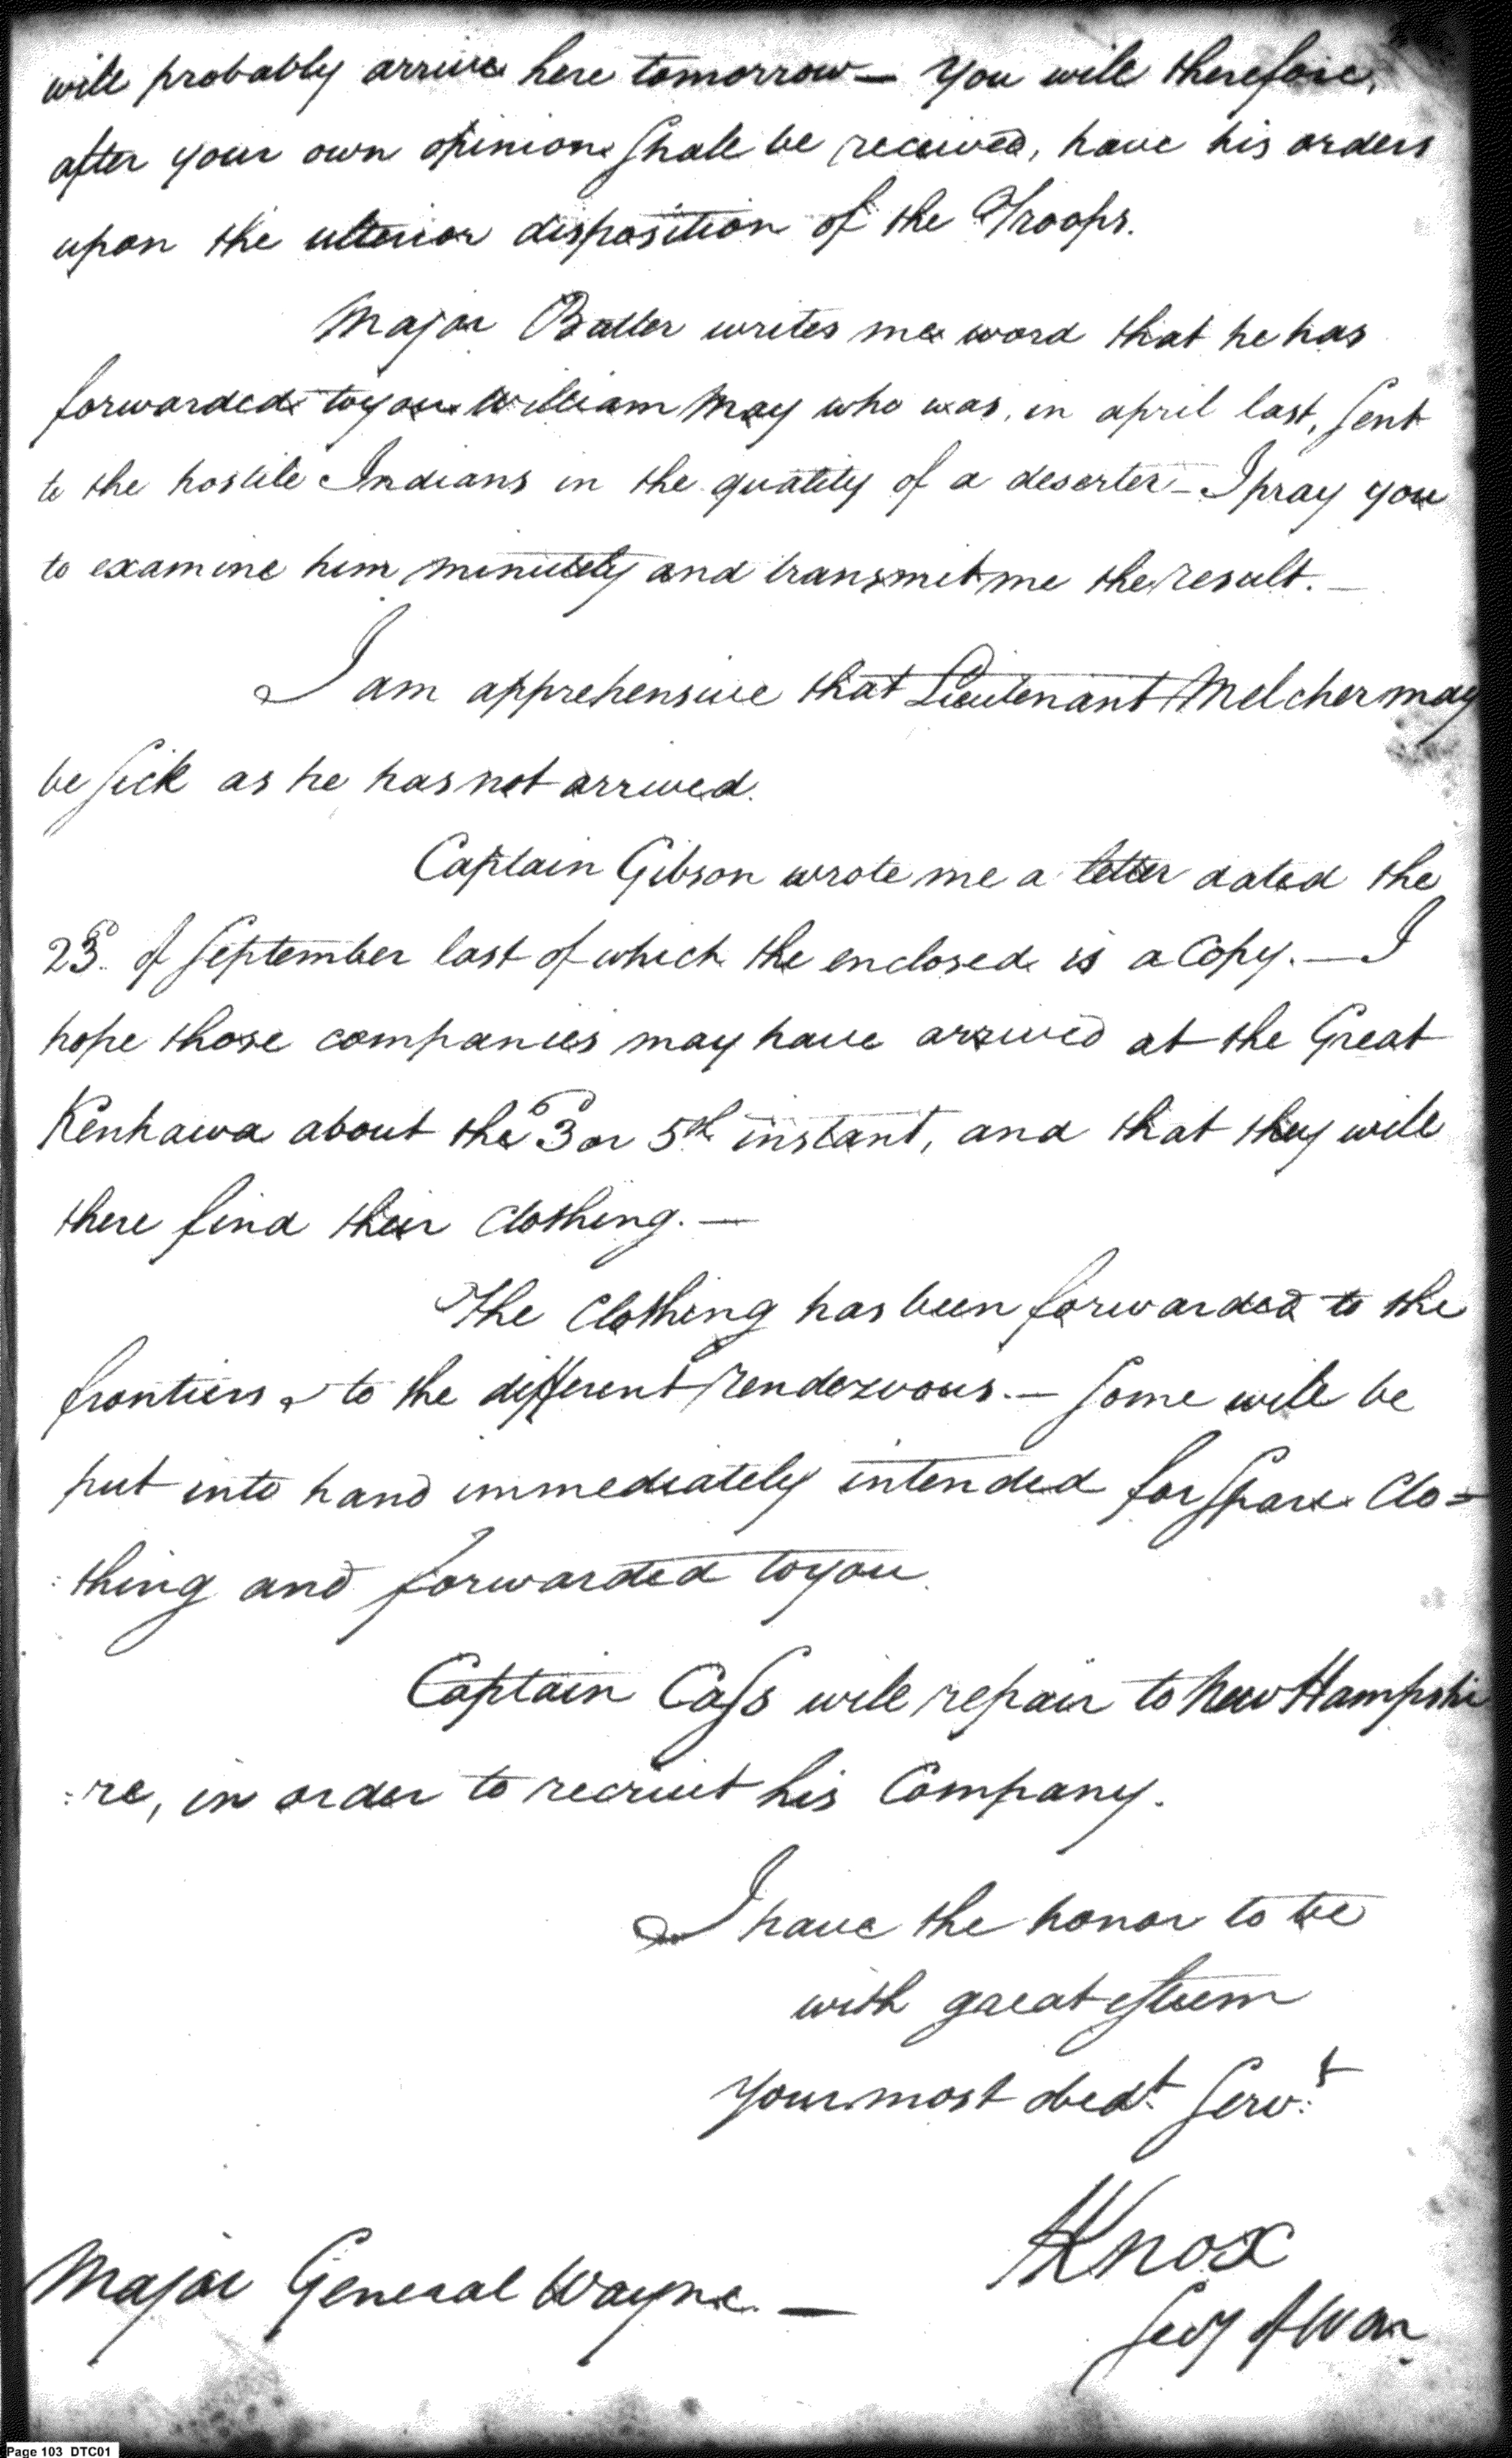 will probably arrive here tomorrow — You will therefore,
after your own opinion shall be received, have his orders
upon the ulterior disposition of the Troops.
Major Butler writes me word that he has
forwarded to you William May who was, in april last, sent
to the hostile Indians in the quality of a deserter — I pray you
to examine him minutely and transmit me the result. —
I am apprehensive that Lieutenant Melcher may
be sick as he has not arrived.
Captain Gibson wrote me a letter dated the
23d. of September last of which the enclosed is a Copy. — I
hope those companies may have arrived at the Great
Kenhawa about the 3d or 5th instant, and that they will
there find their Clothing. —
The Clothing has been forwarded to the
frontiers & to the different rendezvous. — Some will be
put into hand immediately intended for Spare Clo=
:thing and forwarded to you.
Captain Cass will repair to New Hampshi
:re, in order to recruit his Company.
I have the honor to be
with great esteem
Your most obedt. Servt.
HKnox
Secy of War
Major General Wayne. —
Page 103 DTC01